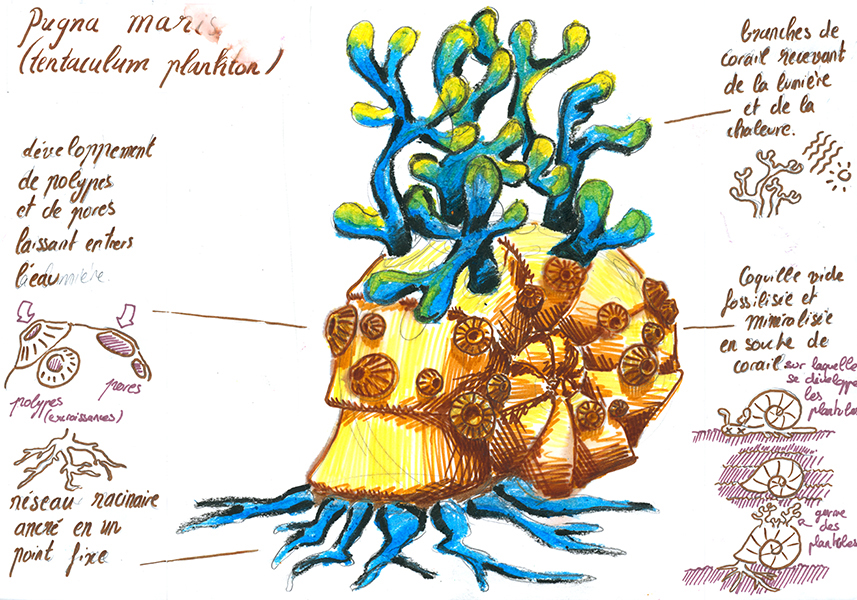 Pugna maris
(tentaculum plankton)
développement
de polypes
et de pores
laissant entrers
l'eau
polypes
(excroissances)
pores
réseau racinaire
ancré en un
point fixe
branches de
corail recevant
de la lumière
et de la
chaleure.
Coquille vide
fossilisée et
minéralisée
en souche de
corail sur laquelle
se développe
les
planktoles
germe
des
planktoles